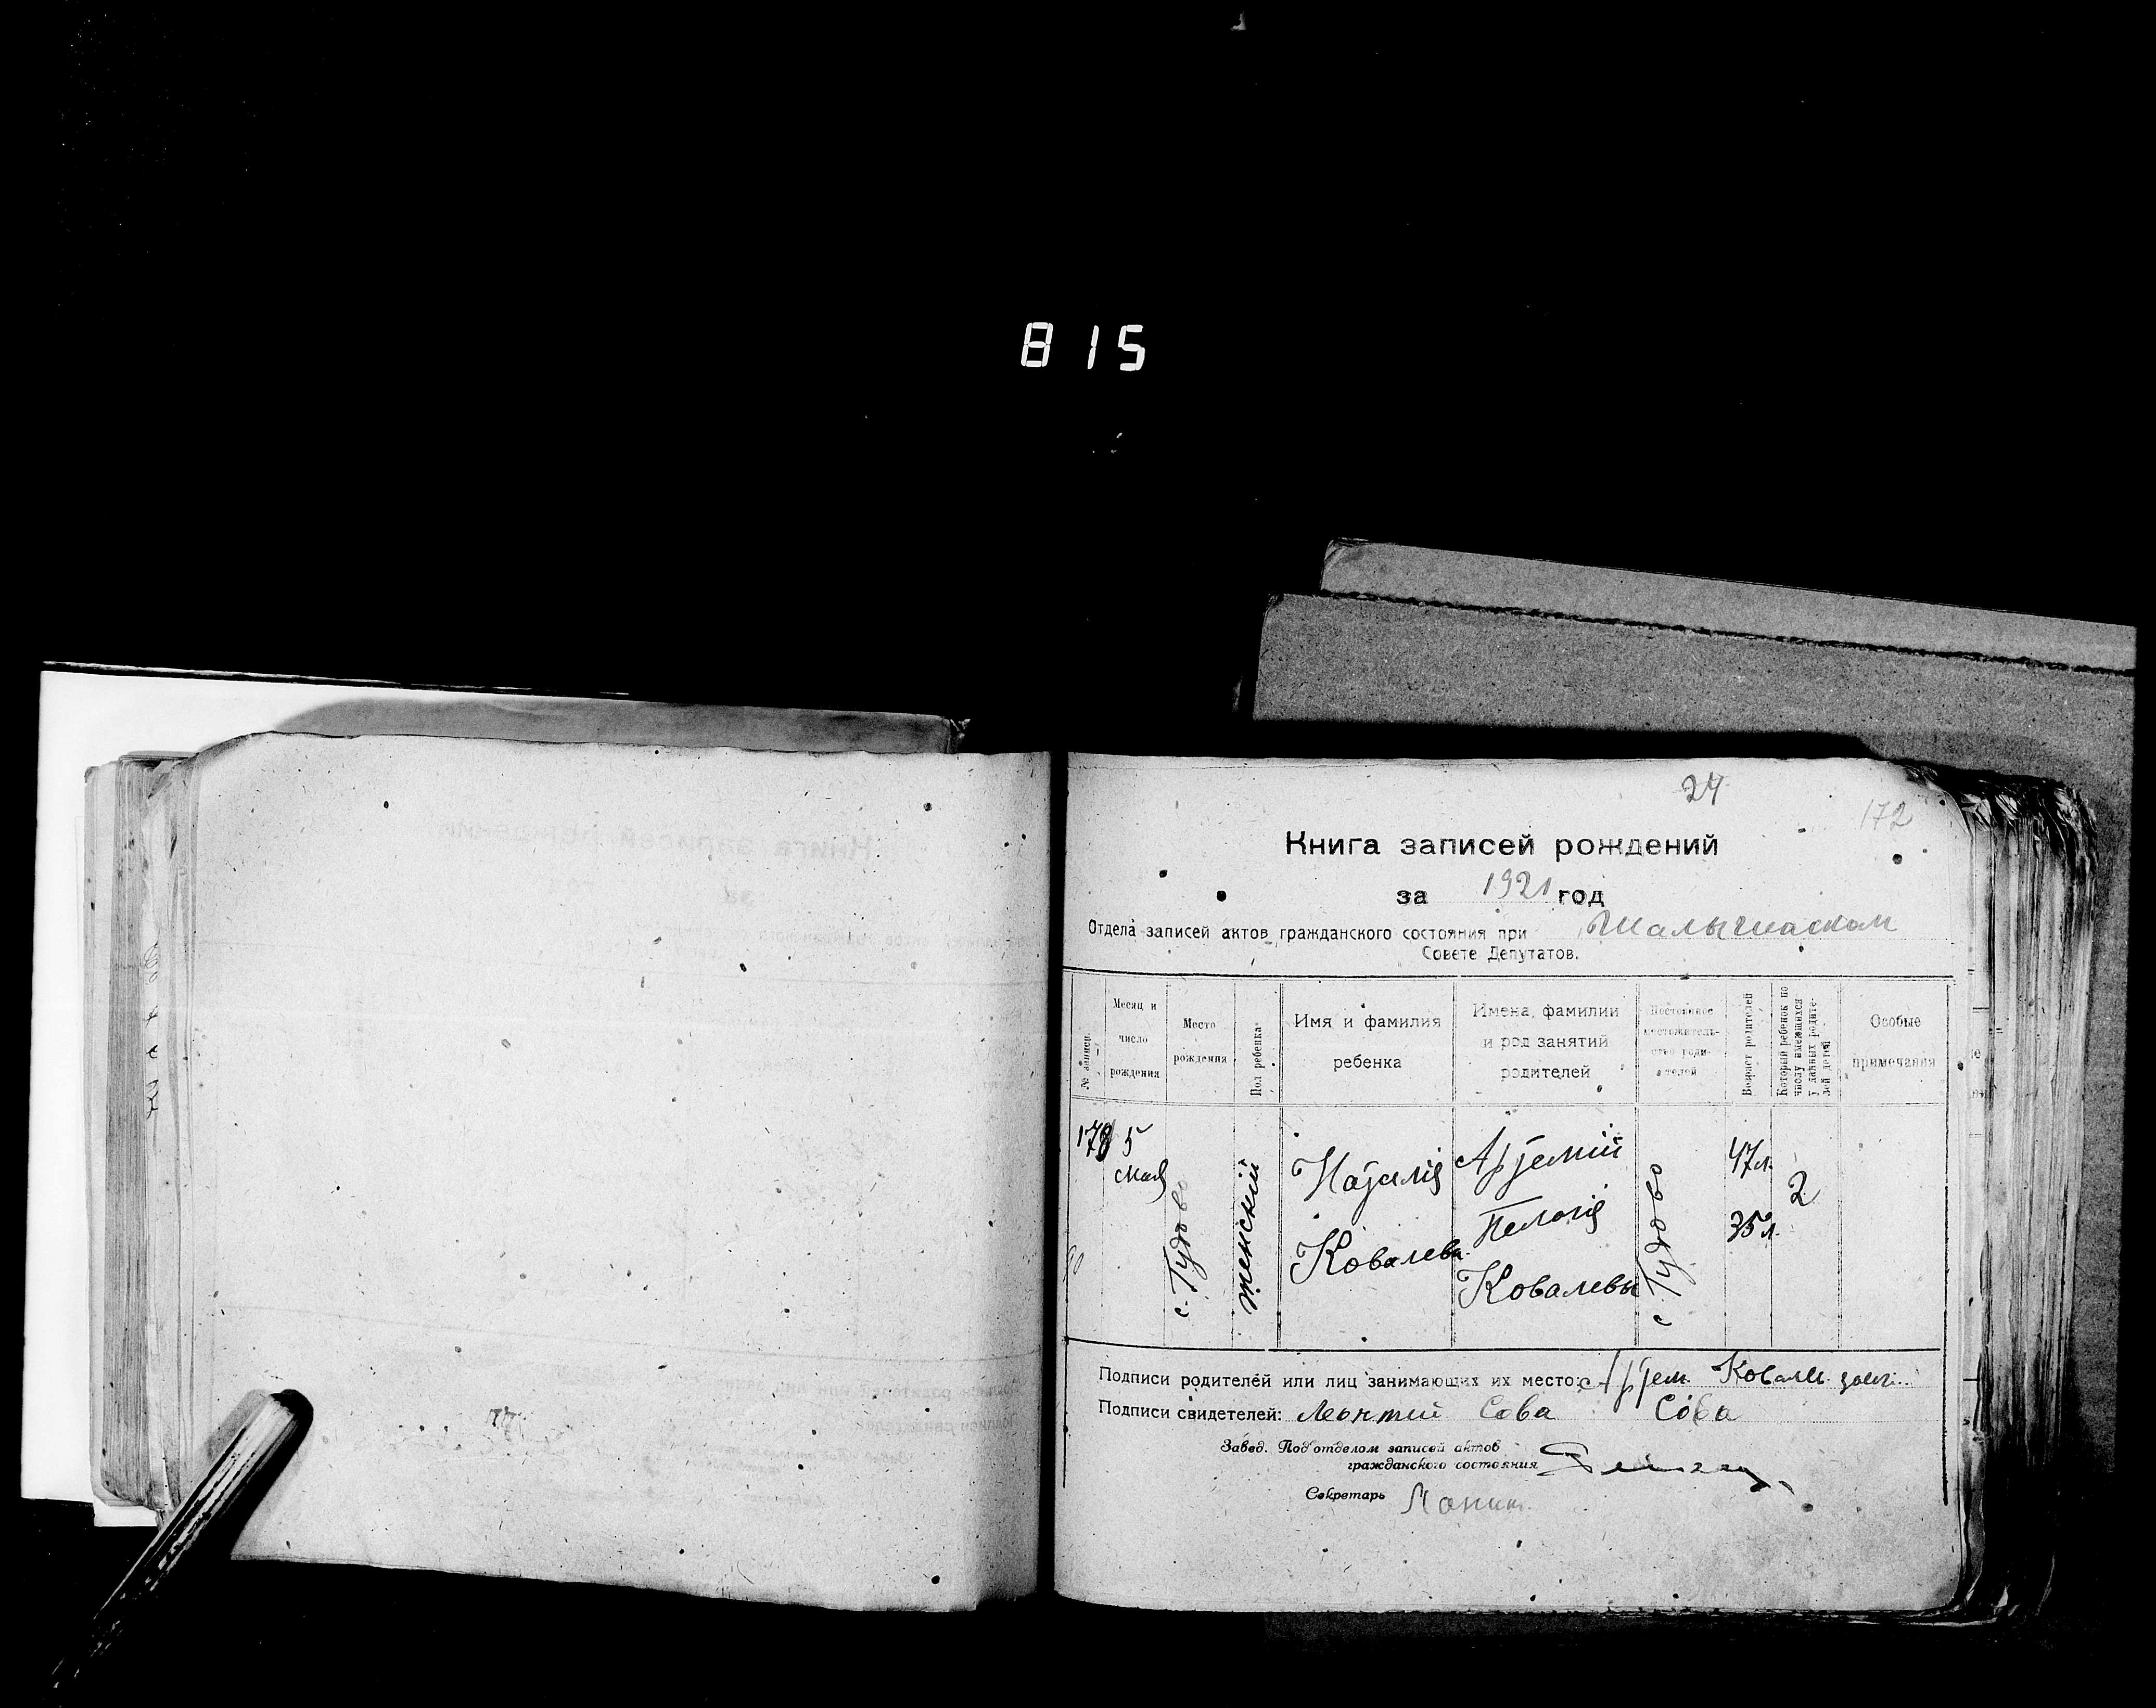 815
24
172
Книга записей рождений
за 1921 год
Отдела записей актов гражданского состояния при
Совете Депутатов.
№ записи.
Месяц и число рождения
Место рождения
Пол ребенка
Имя и фамилия ребенка
Имена, фамилии и род занятий родителей
Постоянное местожительство родителей
Возраст родителей
Который ребенок по числу имеющихся у данных родителей детей
Особые примечания
178
5 мая
с. Гудово
женский
Наталія Ковалева
Артемий Пелагія Ковалевы
с. Гудово
47 л.
35 л.
2
Подписи родителей или лиц занимающих их место: Артем
Подписи свидетелей: Леонтий Сова Сова
Завед. Подотделом записей актов
гражданского состояния
Секретарь